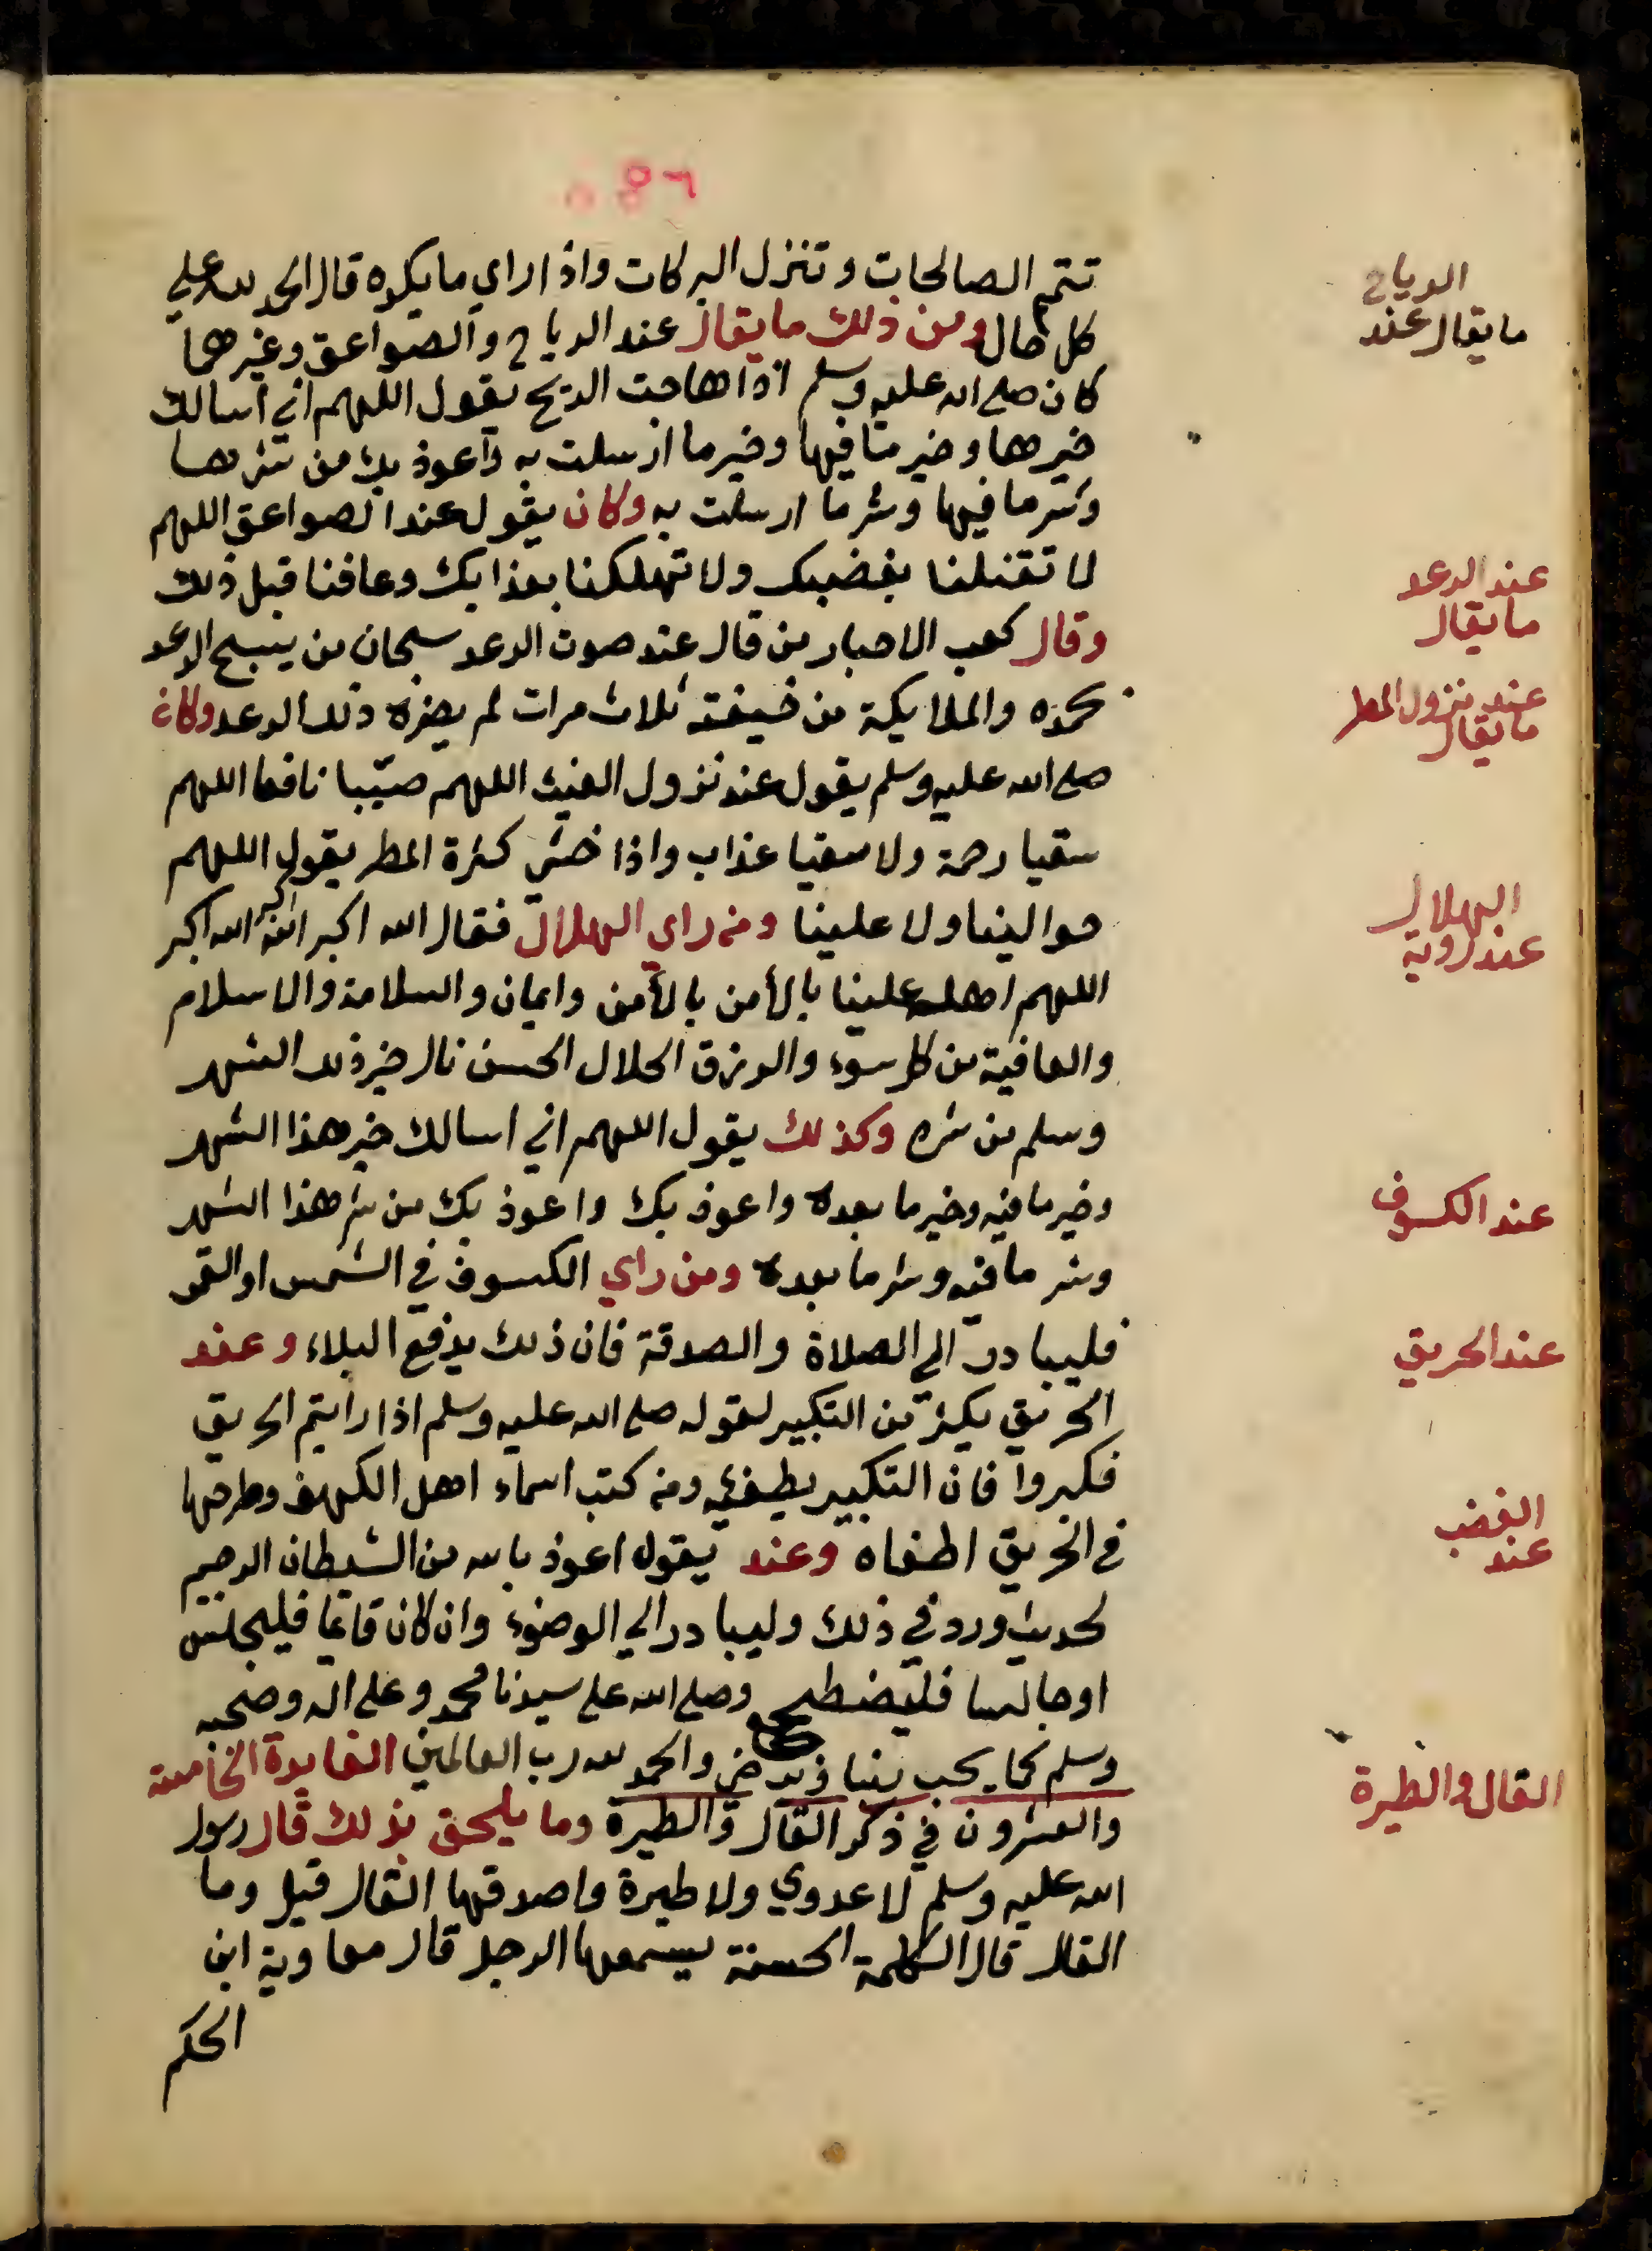 تتم الصالحات وتنزل البركات واذا راي ما يكره قال الحمد لله علي
كل حال ومن ذلك ما يقال عند الرياح والصواعق وغيرهما
كان صلى الله عليه وسلم اذا هاجت الريح يقول اللهم اني اسالك
خيرها وخير ما فيها وخير ما ارسلت به واعوذ بك من شرها
وشر ما فيها وشر ما ارسلت به وكان يقول عند الصواعق اللهم
لا تقتلنا بغضبك ولا تهلكنا بعذابك وعافنا قبل ذلك
وقال كعب الاحبار من قال عند صوت الرعد سبحان من يسبح الرعد
بحمده والملايكة من خيفته ثلاث مرات لم يضره ذلك الرعد وكان
صلى الله عليه وسلم يقول عند نزول الغيث اللهم صيّبا نافعا اللهم
سقيا رحمة ولا سقيا عذاب واذا خشي كثرة المطر يقول اللهم
حوالينا ولا علينا ومن راي الهلال فقال الله اكبر الله اكبر الله اكبر
اللهم اهله علينا بالأمن بالأمن وايمان والسلامة والاسلام
والعافية من كل سوء والرزق الحلال الحسن نال خير ذلك الشهر
وسلم من شره وكذلك يقول اللهم اني اسالك خير هذا الشهر
وخير ما فيه وخير ما بعده واعوذ بك واعوذ بك من شر هذا الشهر
وشر ما فيه وشر ما بعده ومن راي الكسوف في الشمس او القمر
فليبادر الي الصلاة والصدقة فان ذلك يدفع البلاء وعند
الحريق يكثر من التكبير لقوله صلى الله عليه وسلم اذا رايتم الحريق
فكبروا فان التكبير يطفئه ومن كتب اسماء اهل الكهف وطرحها
في الحريق اطفاه وعند يقول اعوذ بالله من الشيطان الرجيم
لحديث ورد في ذلك وليبادر الي الوضوء وان كان قائما فليجلس
او جالسا فليضطجع وصلى الله على سيدنا محمد وعلى اله وصحبه
وسلم كما يحب ربنا ويرضى والحمد لله رب العالمين الفايدة الخامسة
والعشرون في ذكر الفال والطيرة وما يلحق بذلك قال رسول
الله عليه وسلم لا عدوي ولا طيرة واصدقها الفال قيل وما
الفال قال الكلمة الحسنة يسمعها الرجل قال معاوية ابن
الحكم
الرياح
ما يقال عند
عند الرعد
ما يقال
عند نزول المطر
ما يقال
الهلال
عند روية
عند الكسوف
عند الحريق
الغضب
عند
الفال والطيرة